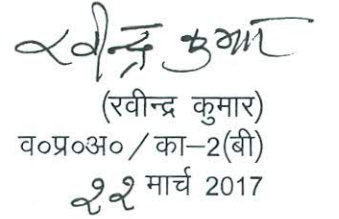 रवीन्द्र कुमार
(रवीन्द्र कुमार)
व०प्र०अ० / का–2(बी)
२२ मार्च 2017